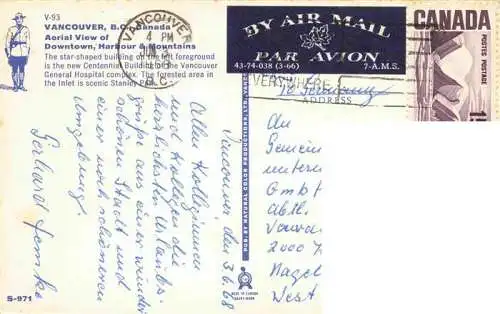 V-93
VANCOUVER, B.C., Canada
Aerial View of
Downtown, Harbour & Mountains
The star-shaped building on the left foreground
is the new Centennial Building of the Vancouver
General Hospital complex. The forested area in
the Inlet is scenic Stanley
VANCOUVER
4 PM
B.C.
BY AIR MAIL
PAR AVION
43-74-038 (3-66)
7-A.M.S.
CANADA
POSTES POSTAGE
EVERYWHERE
ADDRESS
to Germany
Vancouver, den 3.6.68
Allen Kolleginnen
und Kollegen die
herzlichsten Urlaubs-
grüße aus einer wunder
schönen Stadt und
einer noch schöneren
Umgebung.
Gerhard
An
unteren
GmbH
Abtl.
2000
West
MADE IN CANADA
S-971